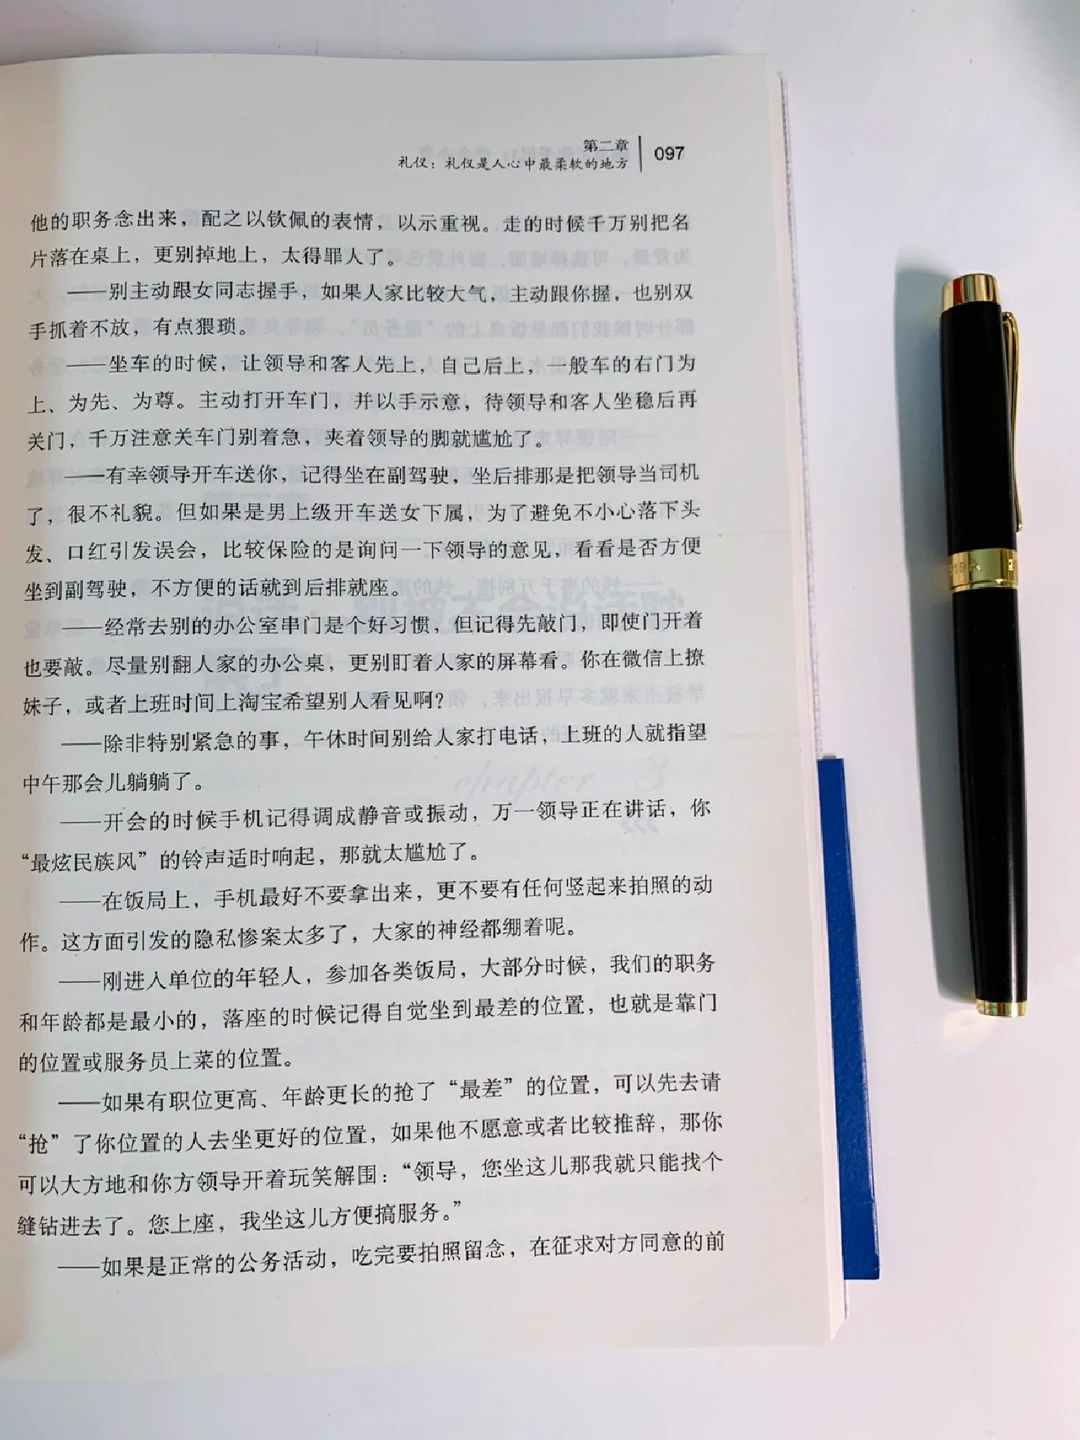 第二章
礼仪：礼仪是人心中最柔软的地方
097
他的职务念出来，配之以钦佩的表情，以示重视。走的时候千万别把名
片落在桌上，更别掉地上，太得罪人了。
——别主动跟女同志握手，如果人家比较大气，主动跟你握，也别双
手抓着不放，有点猥琐。
——坐车的时候，让领导和客人先上，自己后上，一般车的右门为
上、为先、为尊。主动打开车门，并以手示意，待领导和客人坐稳后再
关门，千万注意关车门别着急，夹着领导的脚就尴尬了。
——有幸领导开车送你，记得坐在副驾驶，坐后排那是把领导当司机
了，很不礼貌。但如果是男上级开车送女下属，为了避免不小心落下头
发、口红引发误会，比较保险的是询问一下领导的意见，看看是否方便
坐到副驾驶，不方便的话就到后排就座。
——经常去别的办公室串门是个好习惯，但记得先敲门，即使门开着
也要敲。尽量别翻人家的办公桌，更别盯着人家的屏幕看。你在微信上撩
妹子，或者上班时间上淘宝希望别人看见啊？
——除非特别紧急的事，午休时间别给人家打电话，上班的人就指望
中午那会儿躺躺了。
——开会的时候手机记得调成静音或振动，万一领导正在讲话，你
“最炫民族风”的铃声适时响起，那就太尴尬了。
——在饭局上，手机最好不要拿出来，更不要有任何竖起来拍照的动
作。这方面引发的隐私惨案太多了，大家的神经都绷着呢。
——刚进入单位的年轻人，参加各类饭局，大部分时候，我们的职务
和年龄都是最小的，落座的时候记得自觉坐到最差的位置，也就是靠门
的位置或服务员上菜的位置。
——如果有职位更高、年龄更长的抢了“最差”的位置，可以先去请
“抢”了你位置的人去坐更好的位置，如果他不愿意或者比较推辞，那你
可以大方地和你方领导开着玩笑解围：“领导，您坐这儿那我就只能找个
缝钻进去了。您上座，我坐这儿方便搞服务。”
——如果是正常的公务活动，吃完要拍照留念，在征求对方同意的前